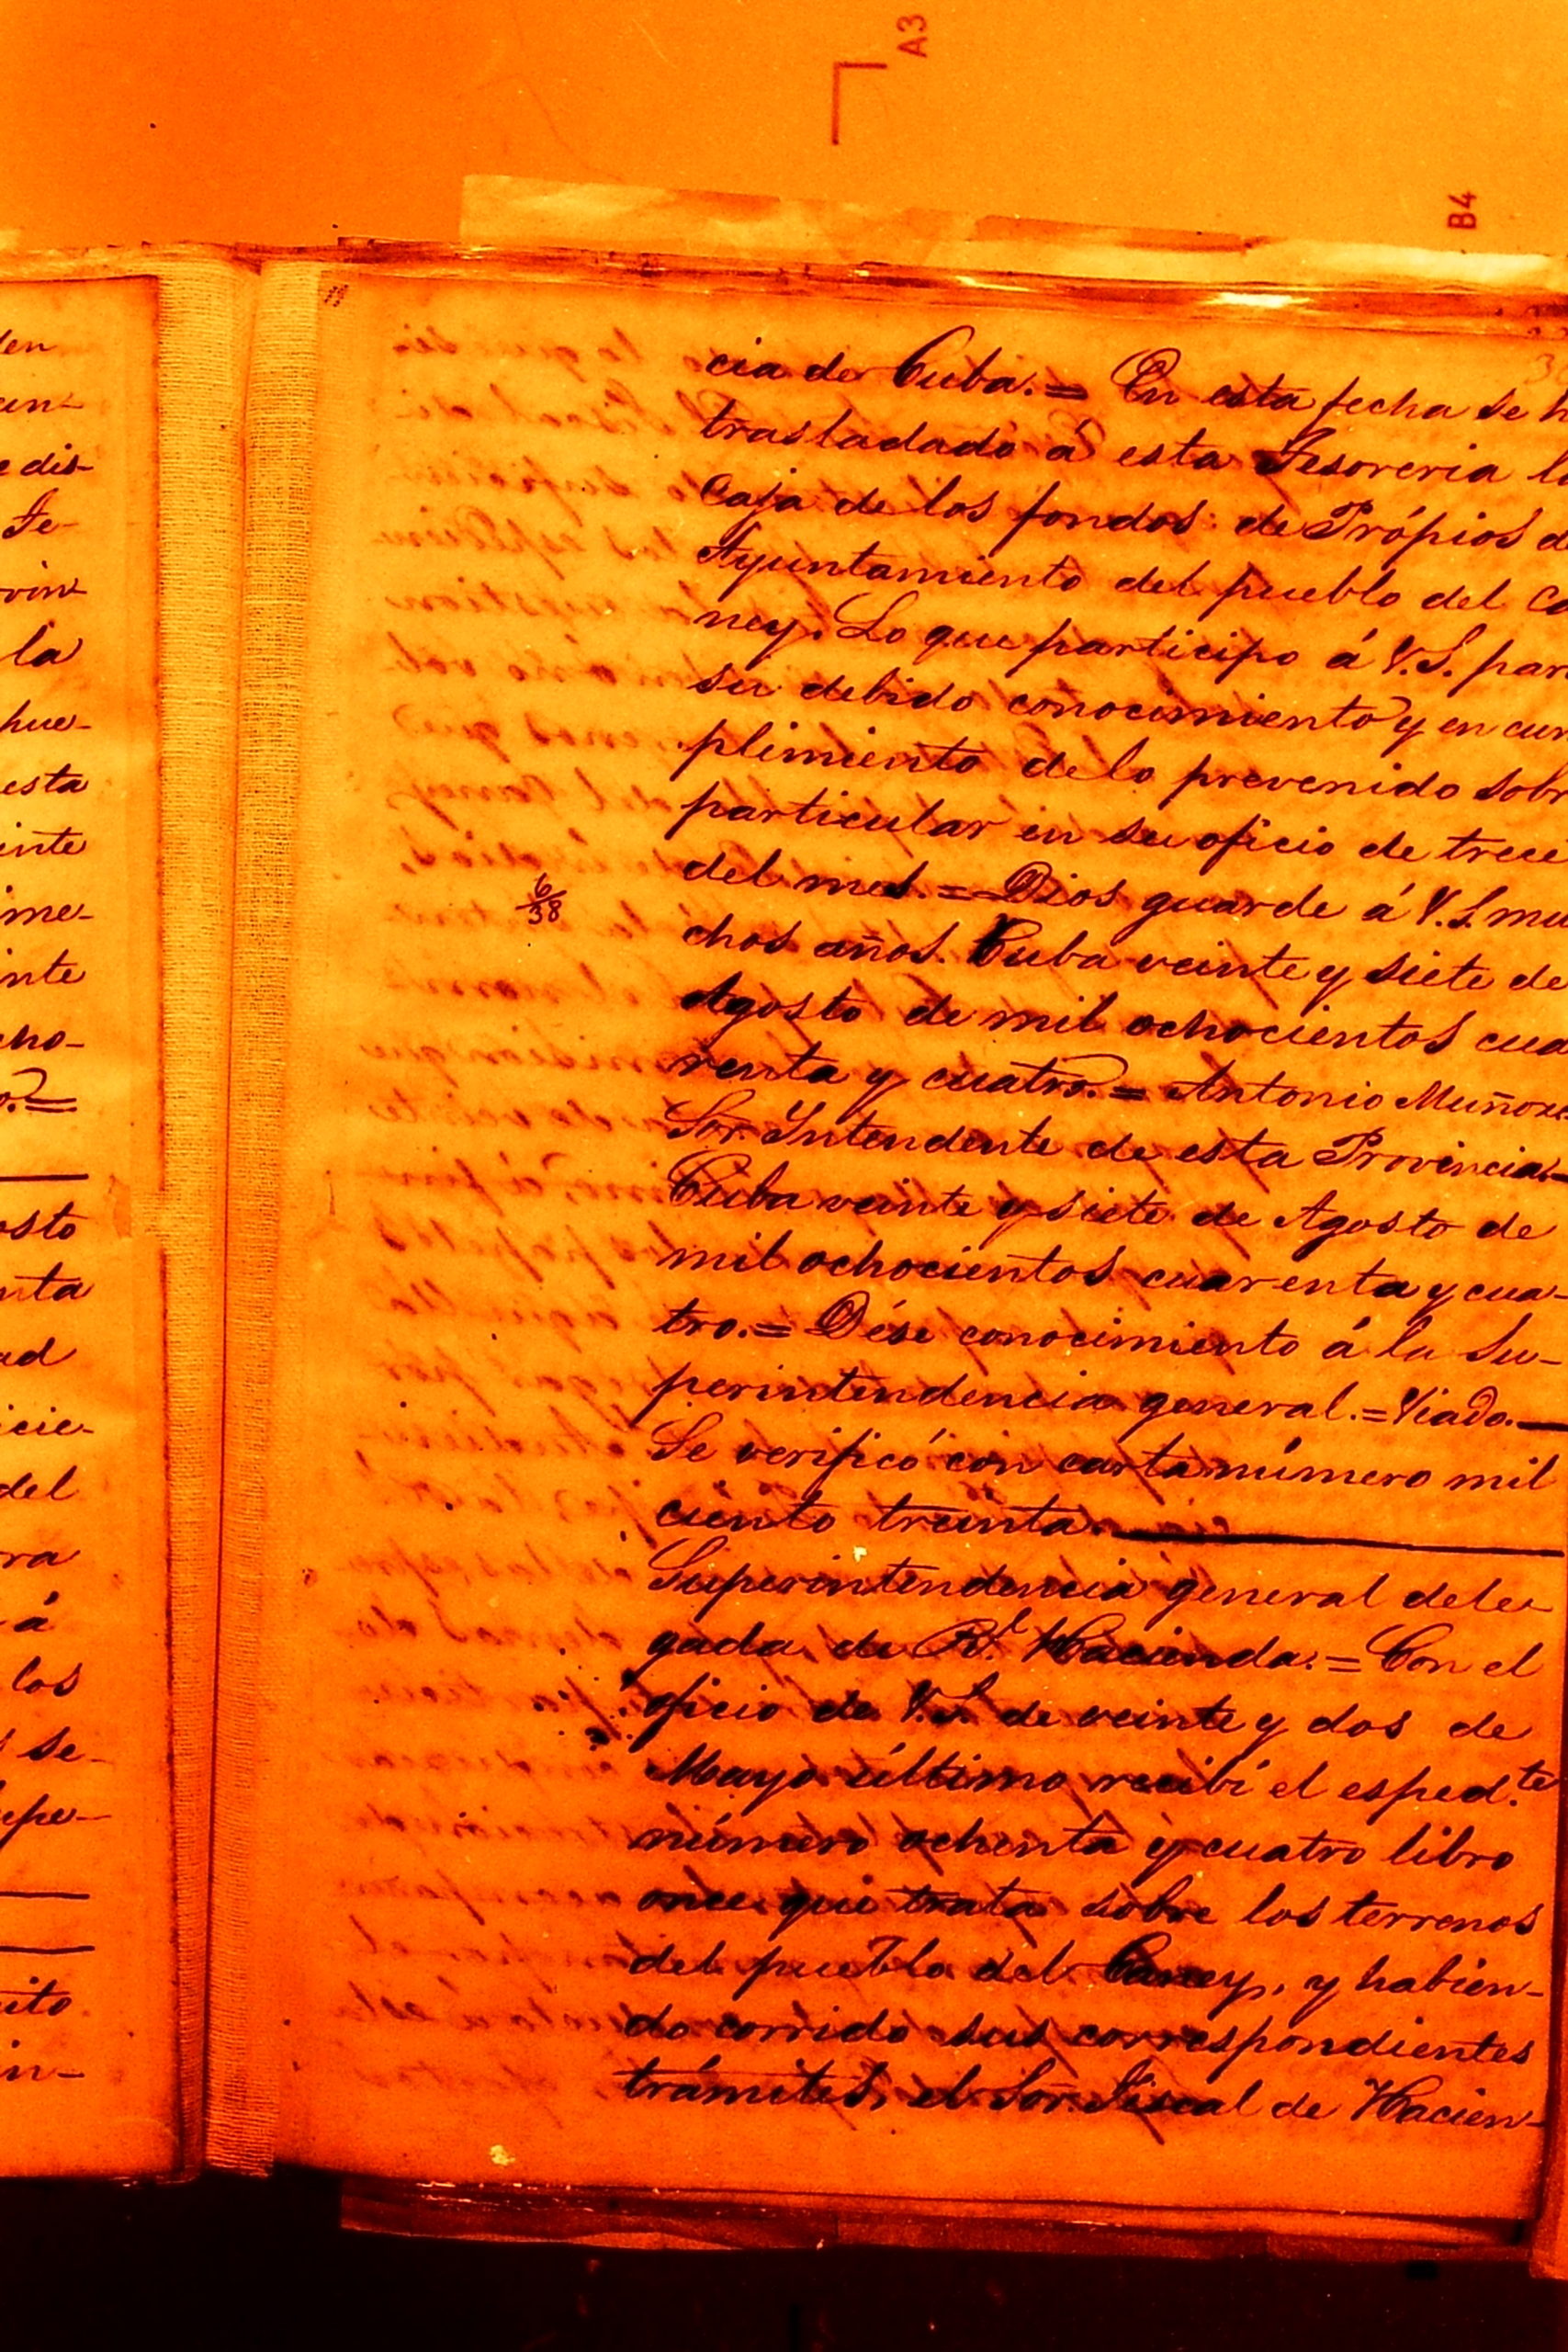 A3
B4
den
un-
e dis-
Te-
vin-
la
pue-
esta
inte
ime-
inte
cho-
o.=
osto
nta
ad
icie-
del
ra
á
los
se-
epe-
ito
in-
cia de Cuba.= En esta fecha se h
trasladado á esta Tesoreria la
Caja de los fondos de Própios d
Ayuntamiento del pueblo del Ca
ney. Lo que participo á V.S. par
su debido conocimiento y en cum
plimiento de lo prevenido sobr
particular en su oficio de trece
del mes.= Dios guarde á V.S. mu
chos años. Cuba veinte y siete de
Agosto de mil ochocientos cua
renta y cuatro.= Antonio Muñoz
Sor. Intendente de esta Provincia.=
Cuba veinte y siete de Agosto de
mil ochocientos cuarenta y cua-
tro.= Dése conocimiento á la Su-
perintendencia general.= Viado.
Se verificó con carta número mil
ciento treinta.
Superintendencia general dele-
gada de Rl. Hacienda.= Con el
oficio de V.S. de veinte y dos de
Mayo último recibí el esped.te
número ochenta y cuatro libro
once que trata sobre los terrenos
del pueblo del Caney, y habien-
do corrido sus correspondientes
trámites, el Sor. Fiscal de Hacien-
6
38